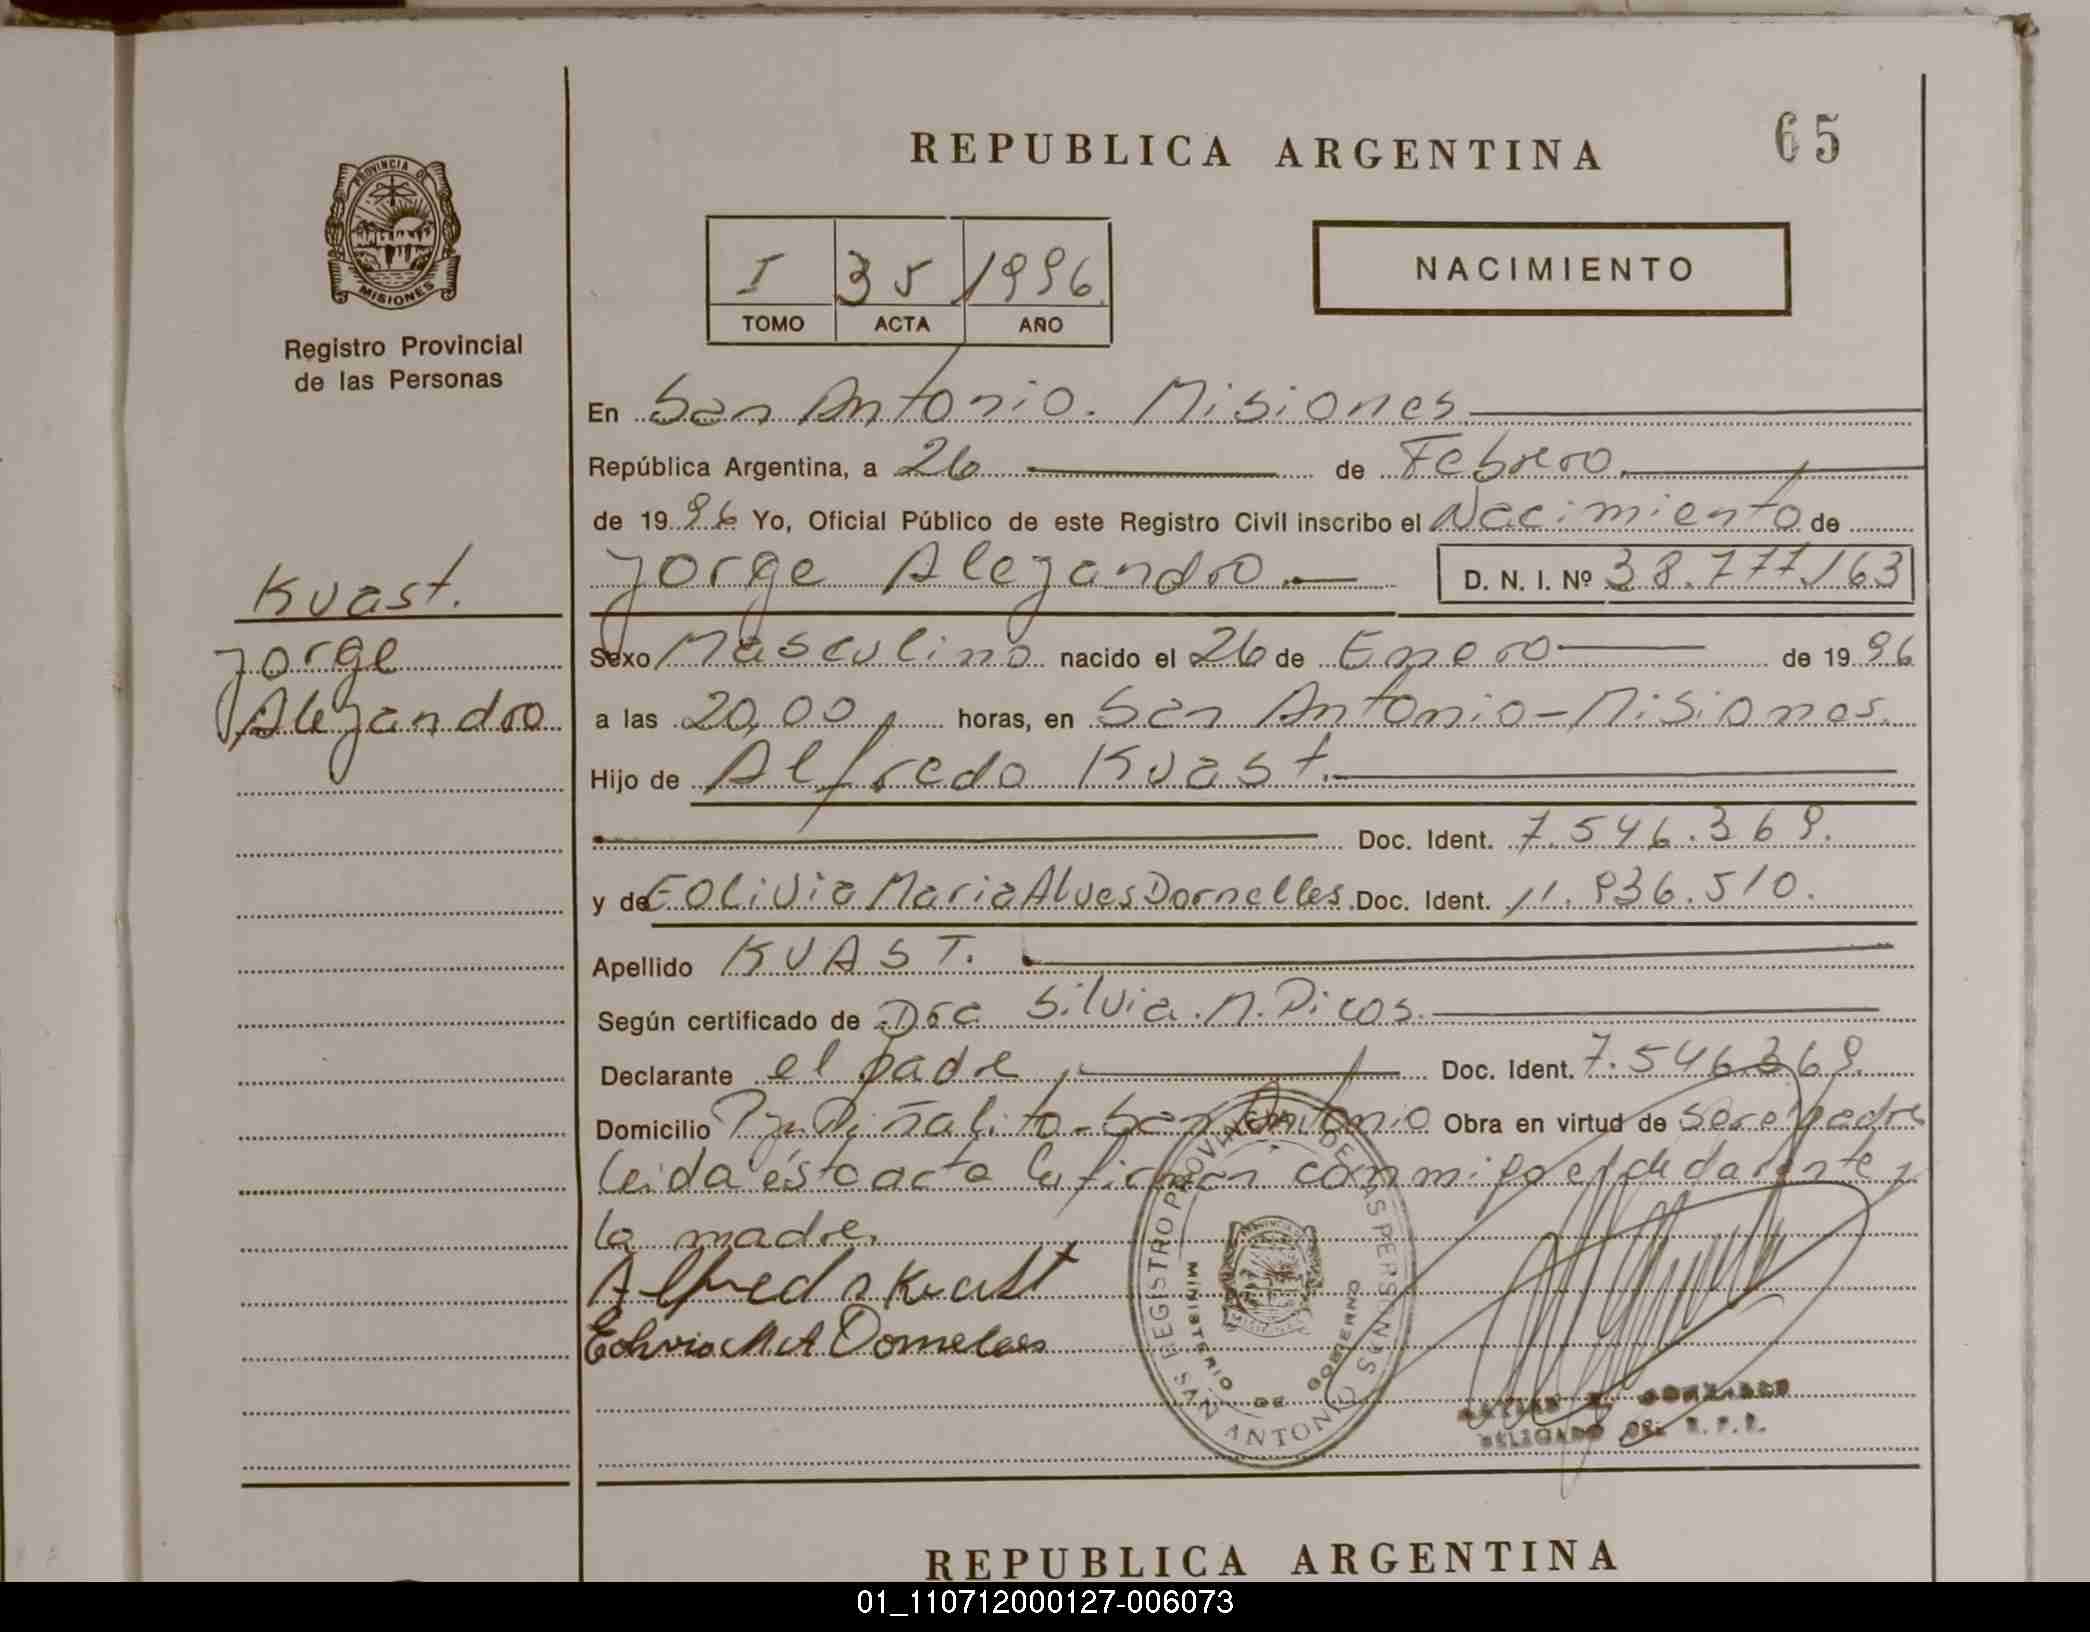 REPUBLICA ARGENTINA
65
PROVINCIA DE
MISIONES
Registro Provincial
de las Personas
I 35 1996
TOMO ACTA AÑO
NACIMIENTO
En San Antonio. Misiones
República Argentina, a 26 de Febrero
de 1996 Yo, Oficial Público de este Registro Civil inscribo el Nacimiento de
Jorge Alejandro D. N. I. Nº 38.777.163
Kuast.
Jorge
Alejandro
Sexo Masculino nacido el 26 de Enero de 1996
a las 20,00 horas, en San Antonio - Misiones.
Hijo de Alfredo Kuast.
Doc. Ident. 7.546.369.
y de Eolivia Maria Alves Dornelles. Doc. Ident. 11.936.510.
Apellido KUAST.
Según certificado de Dra Silvia. N. Picos.
Declarante el padre Doc. Ident. 7.546.369.
Domicilio Piñalito - San Antonio Obra en virtud de ser el padre
leida ésta acta la firman conmigo el declarante y
la madre.
Alfredo Kuast
M A Dornelles
REGISTRO PROVINCIAL DE LAS PERSONAS
MINISTERIO DE GOBIERNO
SAN ANTONIO
DELEGADO DEL R.P.P.
REPUBLICA ARGENTINA
01_110712000127-006073